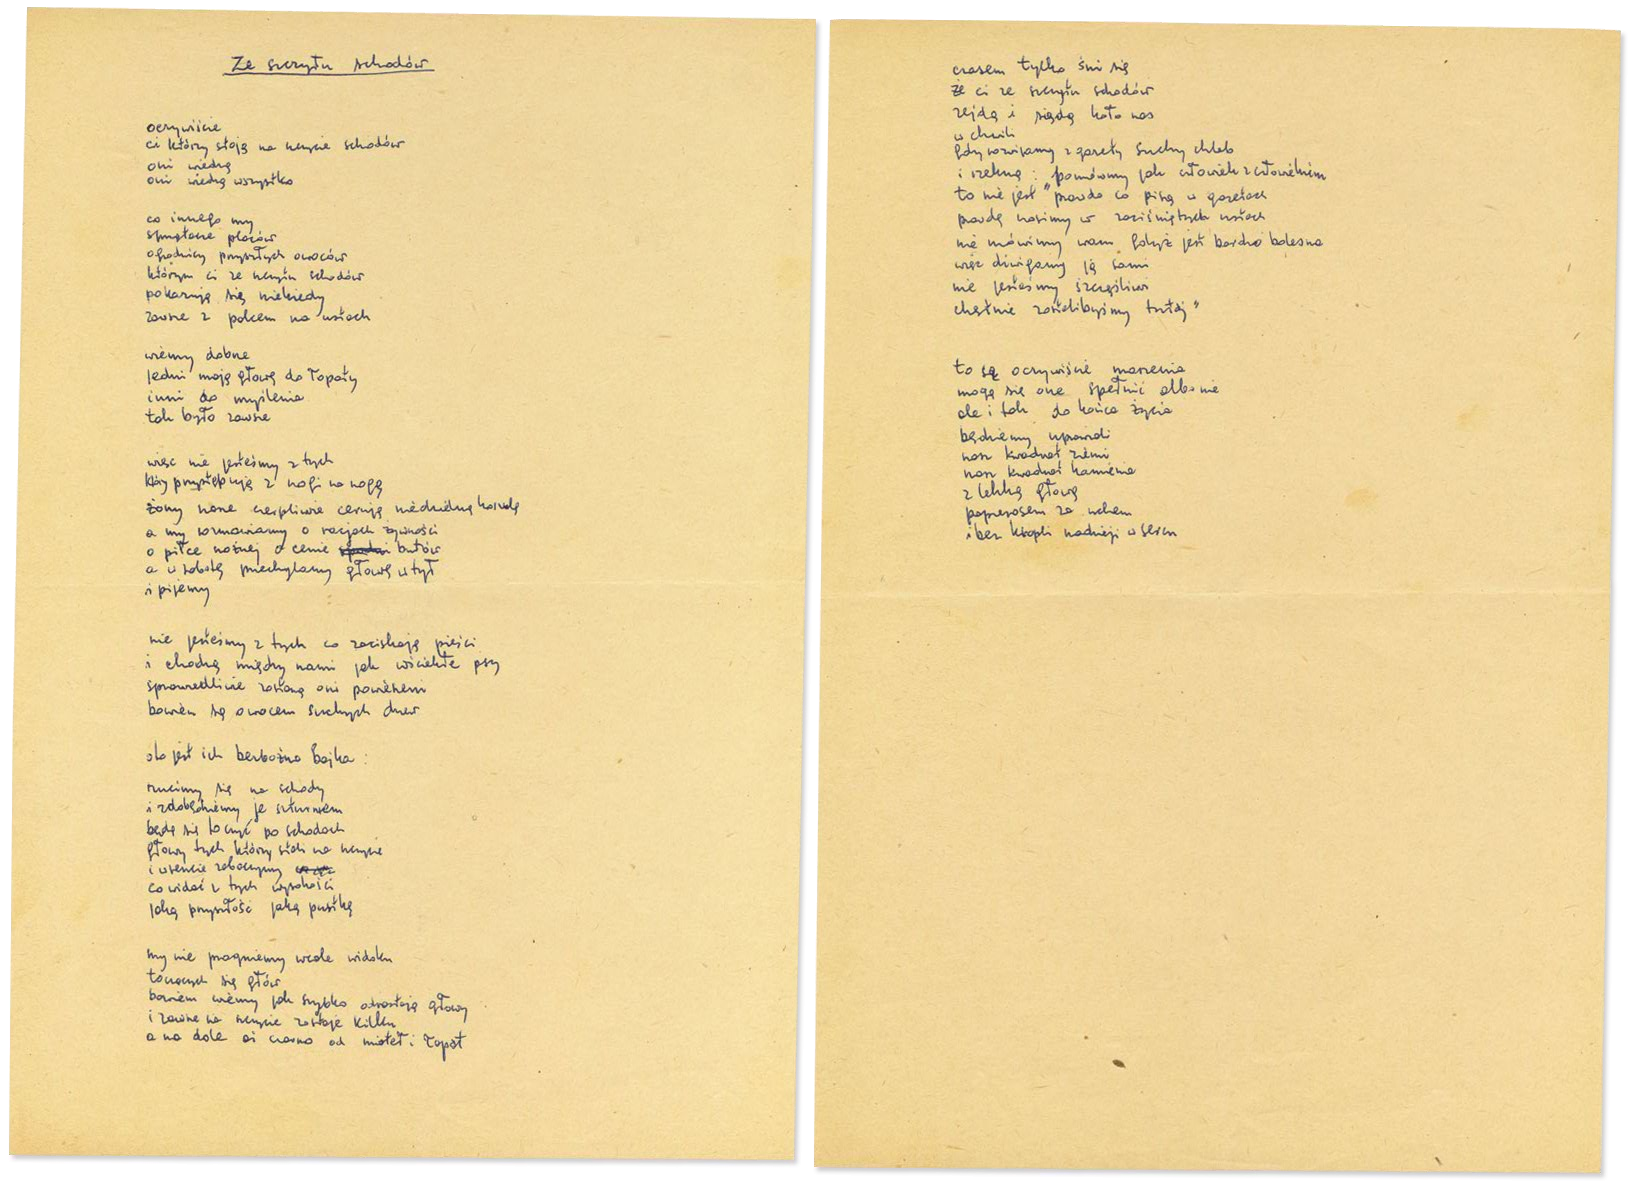 Ze szczytu schodów
oczywiście
ci którzy stoją na szczycie schodów
oni wiedzą
oni wiedzą wszystko
co innego my
sprzątacze placów
ogrodnicy przyszłych owoców
którym ci ze szczytu schodów
pokazują się niekiedy
zawsze z palcem na ustach
wiemy dobrze
jedni mają głowę do łopaty
inni do myślenia
tak było zawsze
więc nie jesteśmy z tych
którzy przystępują z nogi na nogę
żony nasze cierpliwie cerują niedzielną koszulę
a my rozmawiamy o racjach żywności
o piłce nożnej o cenie butów
a w sobotę przechylamy głowę w tył
i pijemy
nie jesteśmy z tych co zaciskają pięści
i chodzą między nami jak wściekłe psy
sprawiedliwie zostaną oni powieszeni
bowiem są owocem suchych drzew
oto jest ich bezbożna bajka:
rzucimy się na schody
i zdobędziemy je szturmem
będą się toczyć po schodach
głowy tych którzy stali na szczycie
i wreszcie zobaczymy
co widać z tych wysokości
jaką przyszłość jaką pustkę
my nie pragniemy wcale widoku
toczących się głów
bowiem wiemy jak szybko odrastają głowy
i zawsze na szczycie zostaje kilku
a na dole aż czarno od mioteł i łopat
czasem tylko śni się
że ci ze szczytu schodów
zejdą i siądą koło nas
w chwili
gdy rozwijamy z gazety suchy chleb
i rzekną: pomówmy jak człowiek z człowiekiem
to nie jest "prawda co piszą w gazetach
prawdę nosimy w zaciśniętych ustach
nie mówimy wam gdyż jest bardzo bolesna
więc dźwigamy ją sami
nie jesteśmy szczęśliwi
chętnie zostalibyśmy tutaj"
to są oczywiście marzenia
mogą się one spełnić albo nie
ale i tak do końca życia
będziemy uprawiali
nasz kwadrat ziemi
nasz kwadrat kamienia
z lekką głową
papierosem za uchem
i bez kropli nadziei w sercu